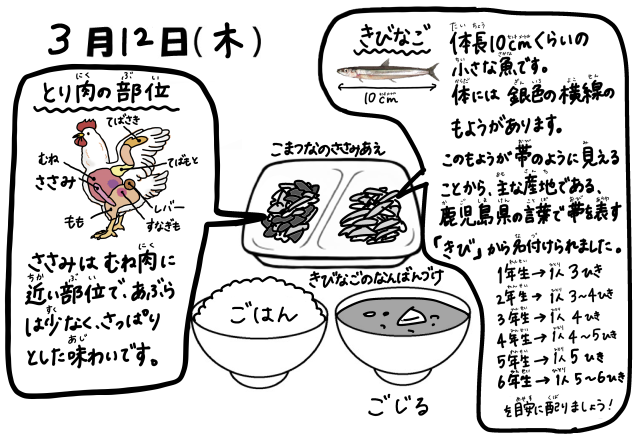 3月12日(木)
とり肉の部位
てばさき
むね
ささみ
てばもと
レバー
もも
すなぎも
ささみはむね肉に
近い部位で、あぶら
は少なく、さっぱり
とした味わいです。
こまつなのささみあえ
きびなごのなんばんづけ
ごはん
ごじる
きびなご
10cm
体長10cmくらいの
小さな魚です。
体には銀色の横線の
もようがあります。
このもようが帯のように見える
ことから、主な産地である、
鹿児島県の言葉で帯を表す
「きび」から名付けられました。
1年生→1人3ひき
2年生→1人3~4ひき
3年生→1人4ひき
4年生→1人4~5ひき
5年生→1人5ひき
6年生→1人5~6ひき
を目安に配りましょう!